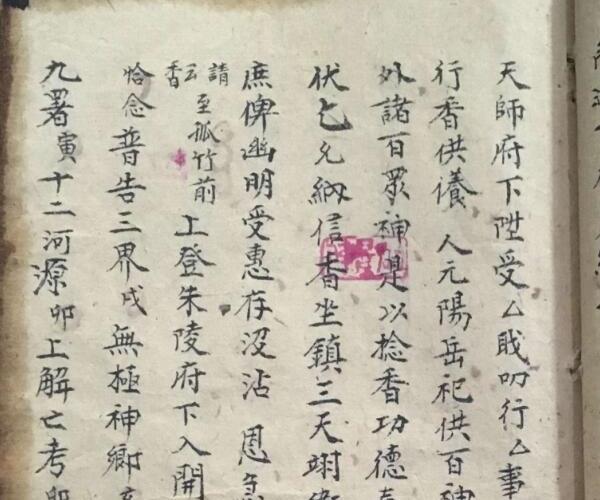 天師府下陞受厶戝叨行厶事
行香供養 人元陽岳祀供百神
外諸百衆神是以捻香功德
伏乞允納信香坐鎮三天翊衛
庶俾幽明受惠存沒沾 恩
請至孤竹前
香云
上登朱陵府下入開
恰念普告三界戌無極神鄉
九署寅十二河源卯上解亡考